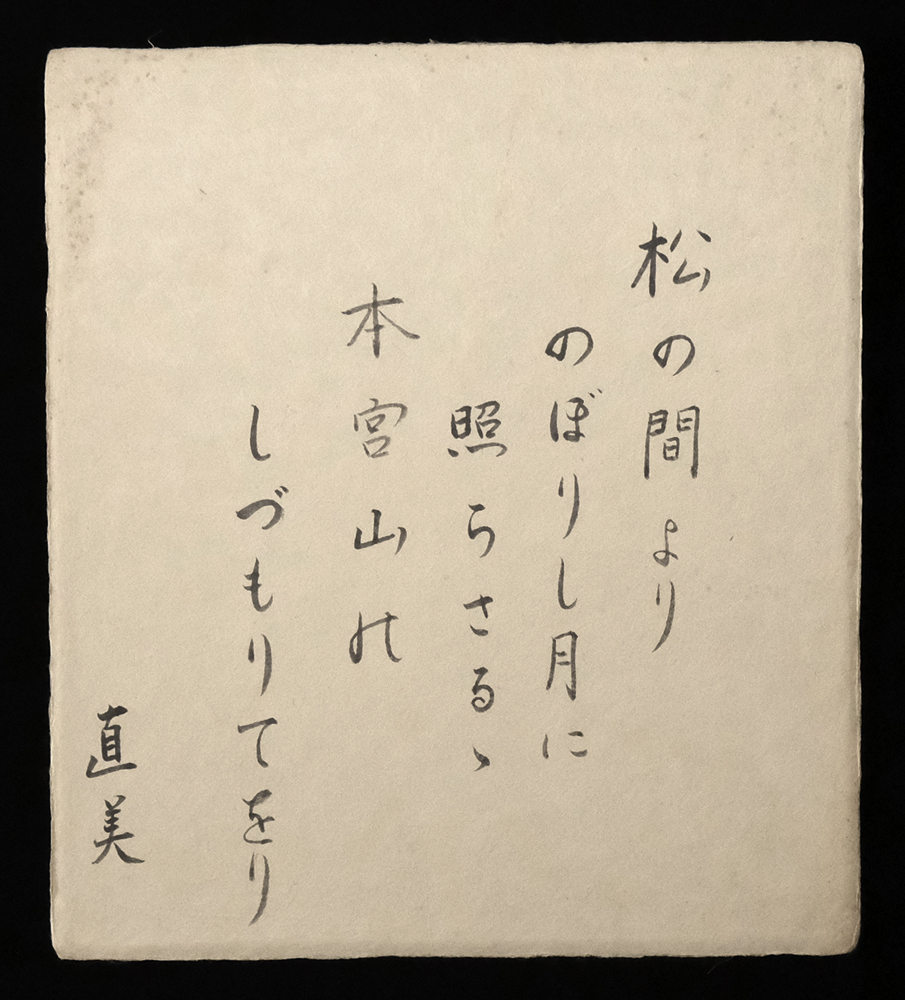 松の間より
のぼりし月に
照らさるゝ
本宮山の
しづもりてをり
直美